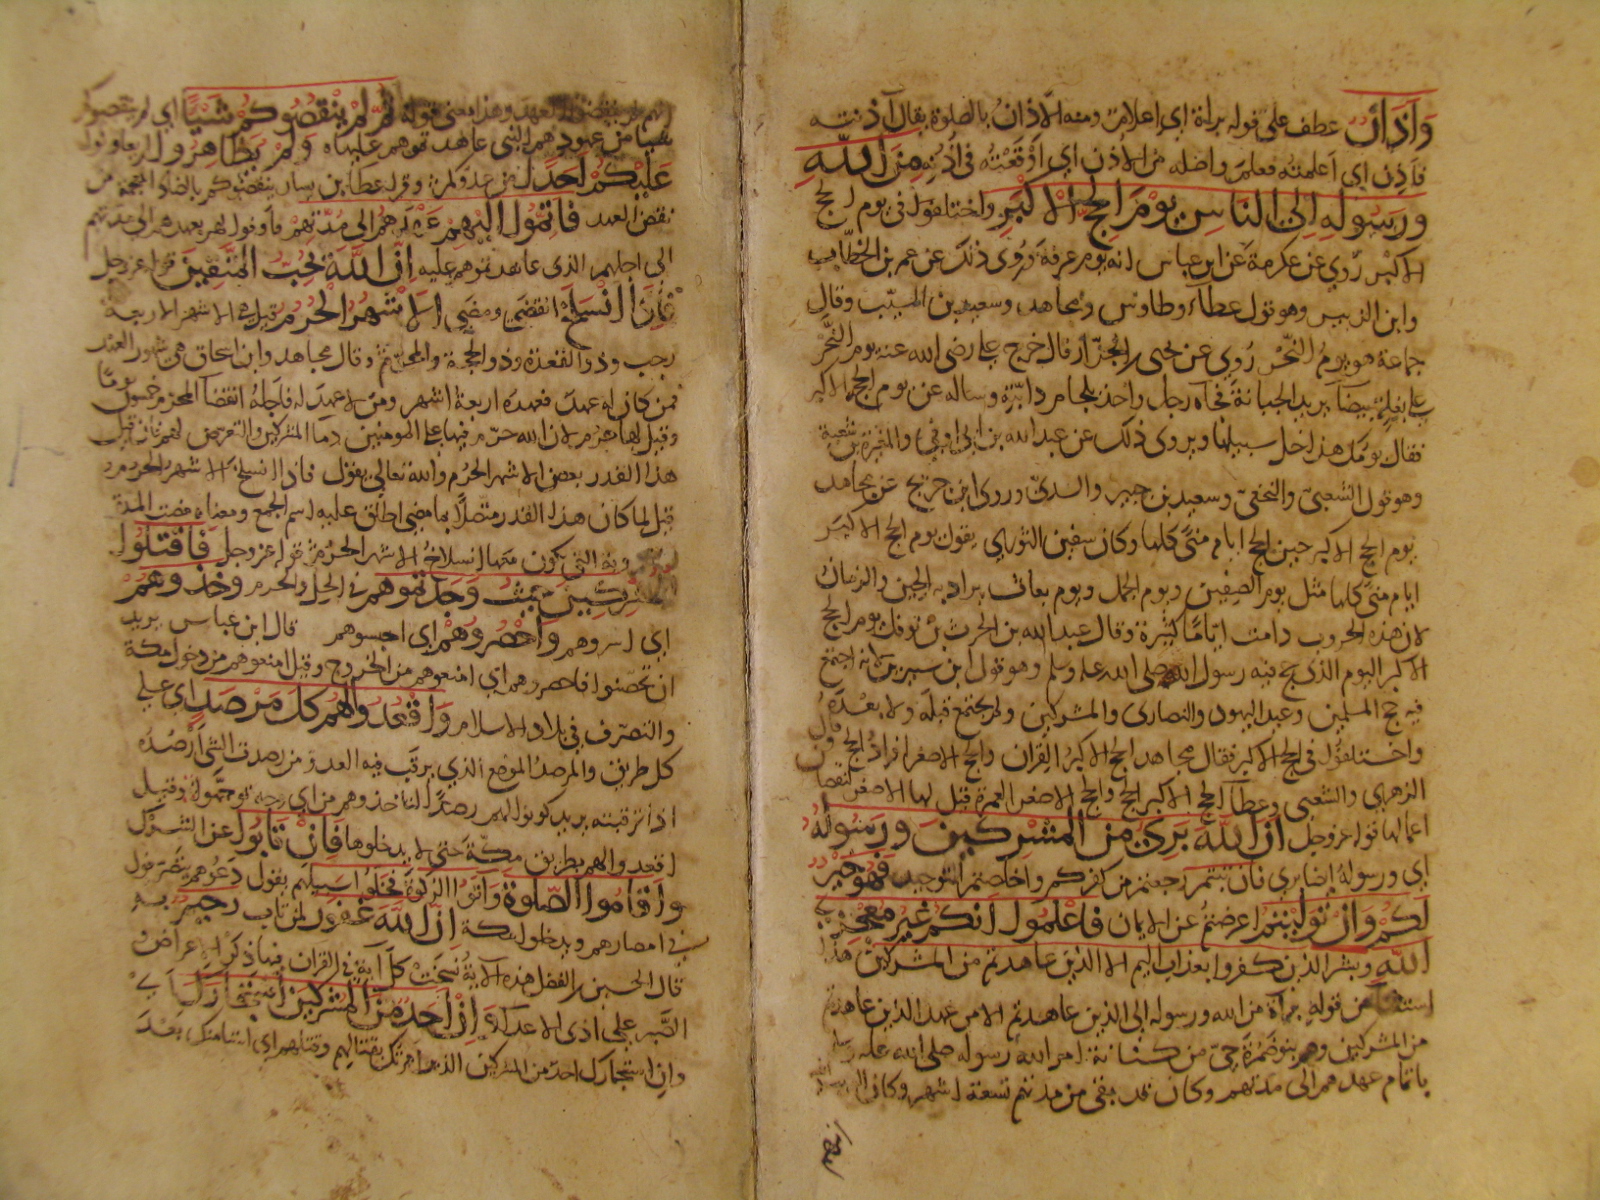 وَأَذَانٌ عطف على قوله براة اي اعلام ومنه الاذان بالصلوة يقال آذنته
فاذن اي اعلمته فعلم واصله من الاذن اي اوقعته في اذنه مِنَ اللَّهِ
وَرَسُولِهِ اِلَى النَّاسِ يَوْمَ الحَجِّ الاَكْبَرِ واختلفوا في يوم الحج
الاكبر روي عن عكرمة عن ابن عباس انه يوم عرفة وروى ذلك عن عمر بن الخطاب
وابن الزبير وهو قول عطاء وطاوس ومجاهد وسعيد بن المسيب وقال
جماعة هو يوم النحر روي عن يحيى بن الجزار قال خرج علي رضى الله عنه يوم النحر
على بغلة بيضا يريد الجبانة فجآه رجل واخذ بلجام دابته وساله عن يوم الحج الاكبر
فقال يومك هذا خل سبيلها ويروى ذلك عن عبد الله بن ابى اوفى والمغيرة بن شعبة
وهو قول الشعبى والنخعى وسعيد بن جبير والسدى وروى ابن جريج عن مجاهد
يوم الحج الاكبر حين الحج ايام منى كلها وكان سفين الثوري يقول يوم الحج الاكبر
ايام منى كلها مثل يوم الصفين ويوم الجمل ويوم بعاث يراد به الحين والزمان
لان هذه الحروب دامت اياما كثيرة وقال عبد الله بن الحرث بن نوفل يوم الحج
الاكبر اليوم الذى حج فيه رسول الله صلى الله عليه وسلم وهو قول ابن سيرين لانه اجتمع
فيه حج المسلمين وعيد اليهود والنصارى والمشركين ولم يجتمع قبله ولا بعده
واختلفوا في الحج الاكبر فقال مجاهد الحج الاكبر القران والحج الاصغر افراد الحج وقال
الزهري والشعبى وعطآ الحج الاكبر الحج والحج الاصغر العمرة قيل لها الاصغر لنقصان
اعمالها قوله عز وجل اَنَّ اللَّهَ بَرِيٌ مِنَ المشْرِكينَ وَرَسُولُهُ
اي ورسوله ايضا بري فَان تبتم رجعتم من كفركم واخلصتم التوحيد فَهُوَ خَيْر
لَكُمْ وَاِنْ تَوَلَّيْتُمْ اعرضتم عن الايمان فَاعْلَمُوا اَنَّكُمْ غَيْرُ مُعْجِزِي
اللَّهِ وبشر الذين كفروا بعذاب اليم الا الذين عاهدتم من المشركين هذا
استثنا من قوله براة من الله ورسوله الى الذين عاهدتم الا من عهد الذين عاهدتم
من المشركين وهم بنو ضمرة حي من كنانة امر الله رسوله صلى الله عليه وسلم
باتمام عهدهم الى مدتهم وكان قد بقى من مدتهم تسعة اشهر وكان
العهد وهذا معنى قوله ثُمَّ لَمْ يَنْقُصُوكُمْ شَيْئًا اي لم ينقصوكم
شيا من عهودهم التى عاهدتموهم عليها وَلَمْ يُظَاهِرُوا لم يعاونوا
عَلَيْكُمْ اَحَدًا من عدوكم وقرا عطا بن يسار ينقضوكم بالضاد المعجمة من
نقض العهد فَاَتِمُّوا اِلَيْهِمْ عَهْدَهُمْ الى مُدَّتِهِمْ فاوفوا لهم بعهدهم الى مدتهم
الى اجلهم الذى عاهدتموهم عليه اِنَّ اللَّهَ يُحِبُّ المُتَّقِينَ قوله عز وجل
فَاِذَا انْسَلَخَ انقضى ومضى الاَشْهُرُ الحُرُمُ قيل هى الاشهر الاربعة
رجب وذو القعدة وذو الحجة والمحرم وقال مجاهد وابن اسحاق هى شهور العهد
فمن كان له عهد فعهده اربعة اشهر ومن لا عهد له فاجله انقضا المحرم خمسون يوما
وقيل لها حرم لان الله حرم فيها على المومنين دما المشركين والتعرض لهم فان قيل
هذا القدر بعض الاشهر الحرم والله تعالى يقول فاذا انسلخ الاشهر الحرم
قيل لما كان هذا القدر متصلا بما مضى اطلق عليه اسم الجمع ومعناه مضت المدة
التى يكون معها انسلاخ الاشهر الحرم قوله عز وجل فَاقْتُلُوا
المشْرِكِينَ حَيْثُ وَجَدْتُمُوهُمْ في الحل والحرم وَخُذُوهُمْ
اي اسروهم وَاحْصُرُوهُمْ اي احبسوهم قال ابن عباس يريد
ان تحصنوا فاحصروهم اي امنعوهم من الخروج وقيل امنعوهم من دخول مكة
والتصرف في بلاد الاسلام وَاقْعُدُوا لَهُمْ كُلَّ مَرْصَدٍ اي على
كل طريق والمرصد الموضع الذي يرقب فيه العدو من رصدت الشى ارصده
اذا ترقبته يريد كونوا لهم رصدا لتاخذوهم من اي وجه توجهوا وقيل
اقعدوا لهم بطريق مكة حتى لا يدخلوها فَاِنْ تَابُوا عن الشرك
وَاَقَامُوا الصَّلوةَ وَآتَوُا الزكوةَ فَخَلُّوا سَبِيلَهُمْ يقول دعوهم فليتصرفوا
في امصارهم ويدخلوا مكة اِنَّ اللَّهَ غَفُور لمن تاب رَحِيمٌ به
قال الحسين بن الفضل هذه الآية نسخت كل آية في القران فيها ذكر الاعراض و
الصبر على اذى الاعداء وَاِنْ اَحَدٌ مِنَ المُشْرِكِينَ اسْتَجَارَكَ اي
وان استجارك احد من المشركين الذين امرتك بقتالهم وقتلهم اي استامنك بعد